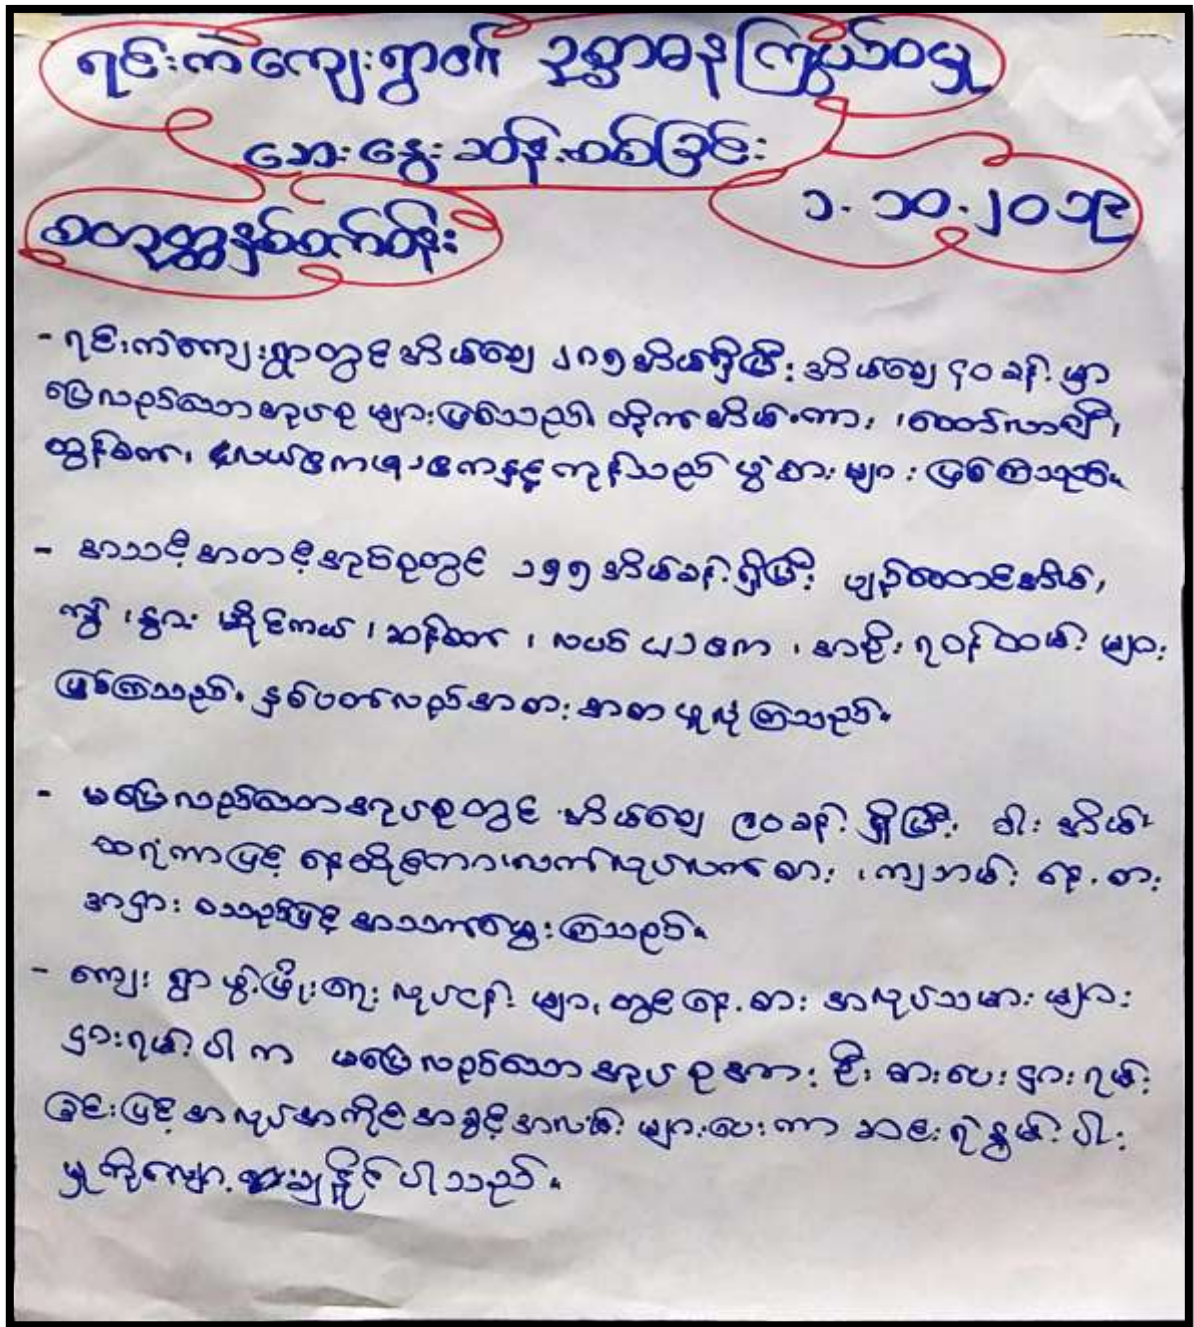 ရင်းကဲကျေးရွာ၏ ဥစ္စာဓန ကြွယ်ဝမှု
ဆွေးနွေးဆန်းစစ်ခြင်း
စတုတ္ထနှစ်ပတ်တိုး
၁.၁၀.၂၀၁၉
- ရင်းကဲကျေးရွာတွင် အိမ်ခြေ ၂၈၅ အိမ်ရှိပြီး အိမ်ခြေ ၄၀ ခန့် မှာ
ပြေလည်သောအုပ်စု များဖြစ်သည်။ တိုက်အိမ်၊ကား၊ ထော်လာဂျီ၊
ထွန်စက်၊ လယ်ဧက နှင့်ကုန်သည် ပွဲစား များ ဖြစ်ကြသည်။
- အသင့်အတင့်အုပ်စုတွင် ၁၅၅ အိမ်ခန့်ရှိပြီး ပျဉ်ထောင်အိမ်၊
ကျွဲ ၊နွား ဆိုင်ကယ် ၊ဆန်စက် ၊ လယ် ဧက ၊ အစိုး ရဝန်ထမ်း များ
ဖြစ်ကြသည်။ နှစ်ပတ်လည်အစား အစာ ဖူလုံ ကြသည်။
- မပြေလည်သောအုပ်စုတွင် အိမ်ခြေ ၉၀ ခန့် ရှိပြီး ဝါး အိမ်
ထရံကာဖြင့် နေထိုင်ကာ၊လက်လုပ်လက် စား ၊ကျဘမ်း နေ့ စား
အငှား စသည်ဖြင့် အသက်မွေး ကြသည်။
- ကျေး ရွာ ဖွံ့ဖြိုးရေး လုပ်ငန်း များ တွင် နေ့ စား အလုပ်သမား များ
ငှားရမ်းပါ က မပြေလည်သော အုပ်စုအား ဦး စားပေး ငှားရမ်း
ခြင်းဖြင့် အလုပ်အကိုင် အခွင့်အလမ်း များပေး ကာ ဆင်းရဲနွမ်း ပါး
မှုကိုလျော့ ချနိုင် ပါသည်။